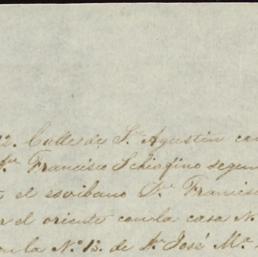 2. Calle de Sn. Agustin con
Dn. Francisco Schiafino segun
el escribano Dn. Francis
el oriente con la casa N.
con la No. 13. de Dn. José Ma.